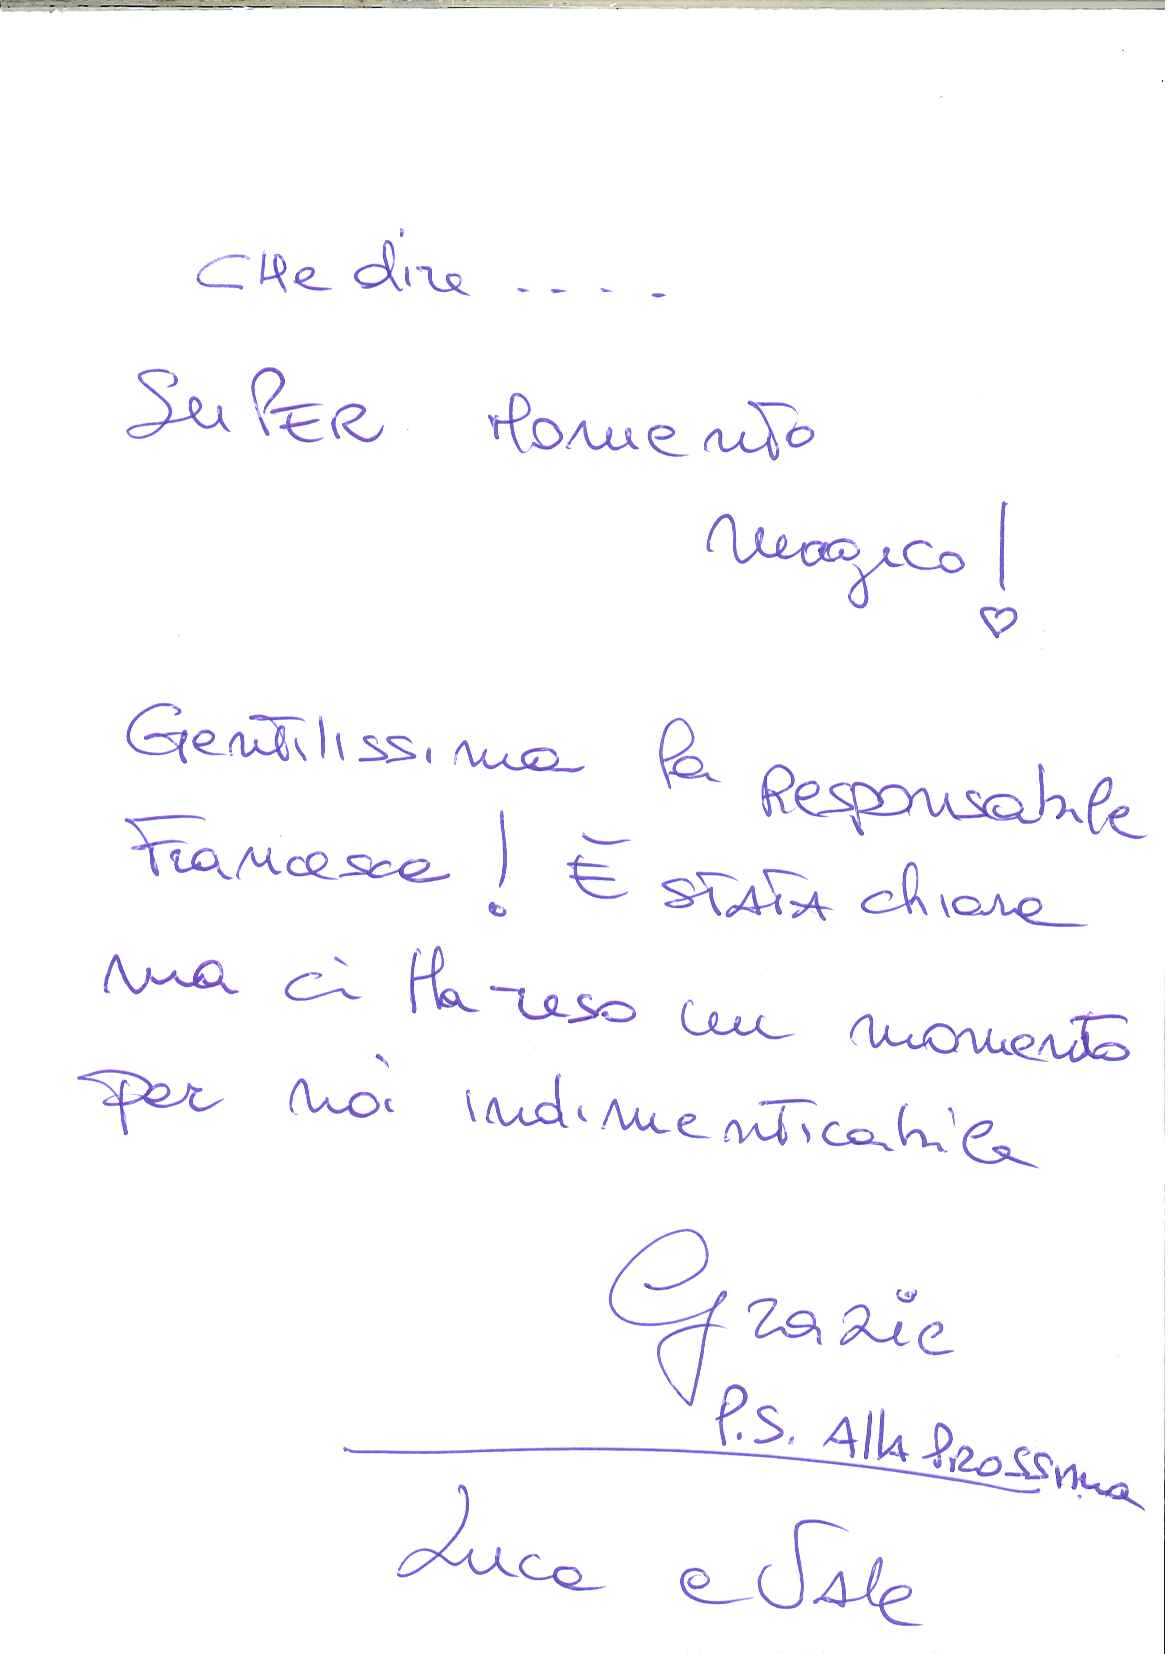 CHe dire ....
SuPER Momento
magico!
Gentilissima la Responsabile
Francesca! È STATA chiara
ma ci Ha reso un momento
per noi indimenticabile
Grazie
P.S. Alla Prossima
Luca e